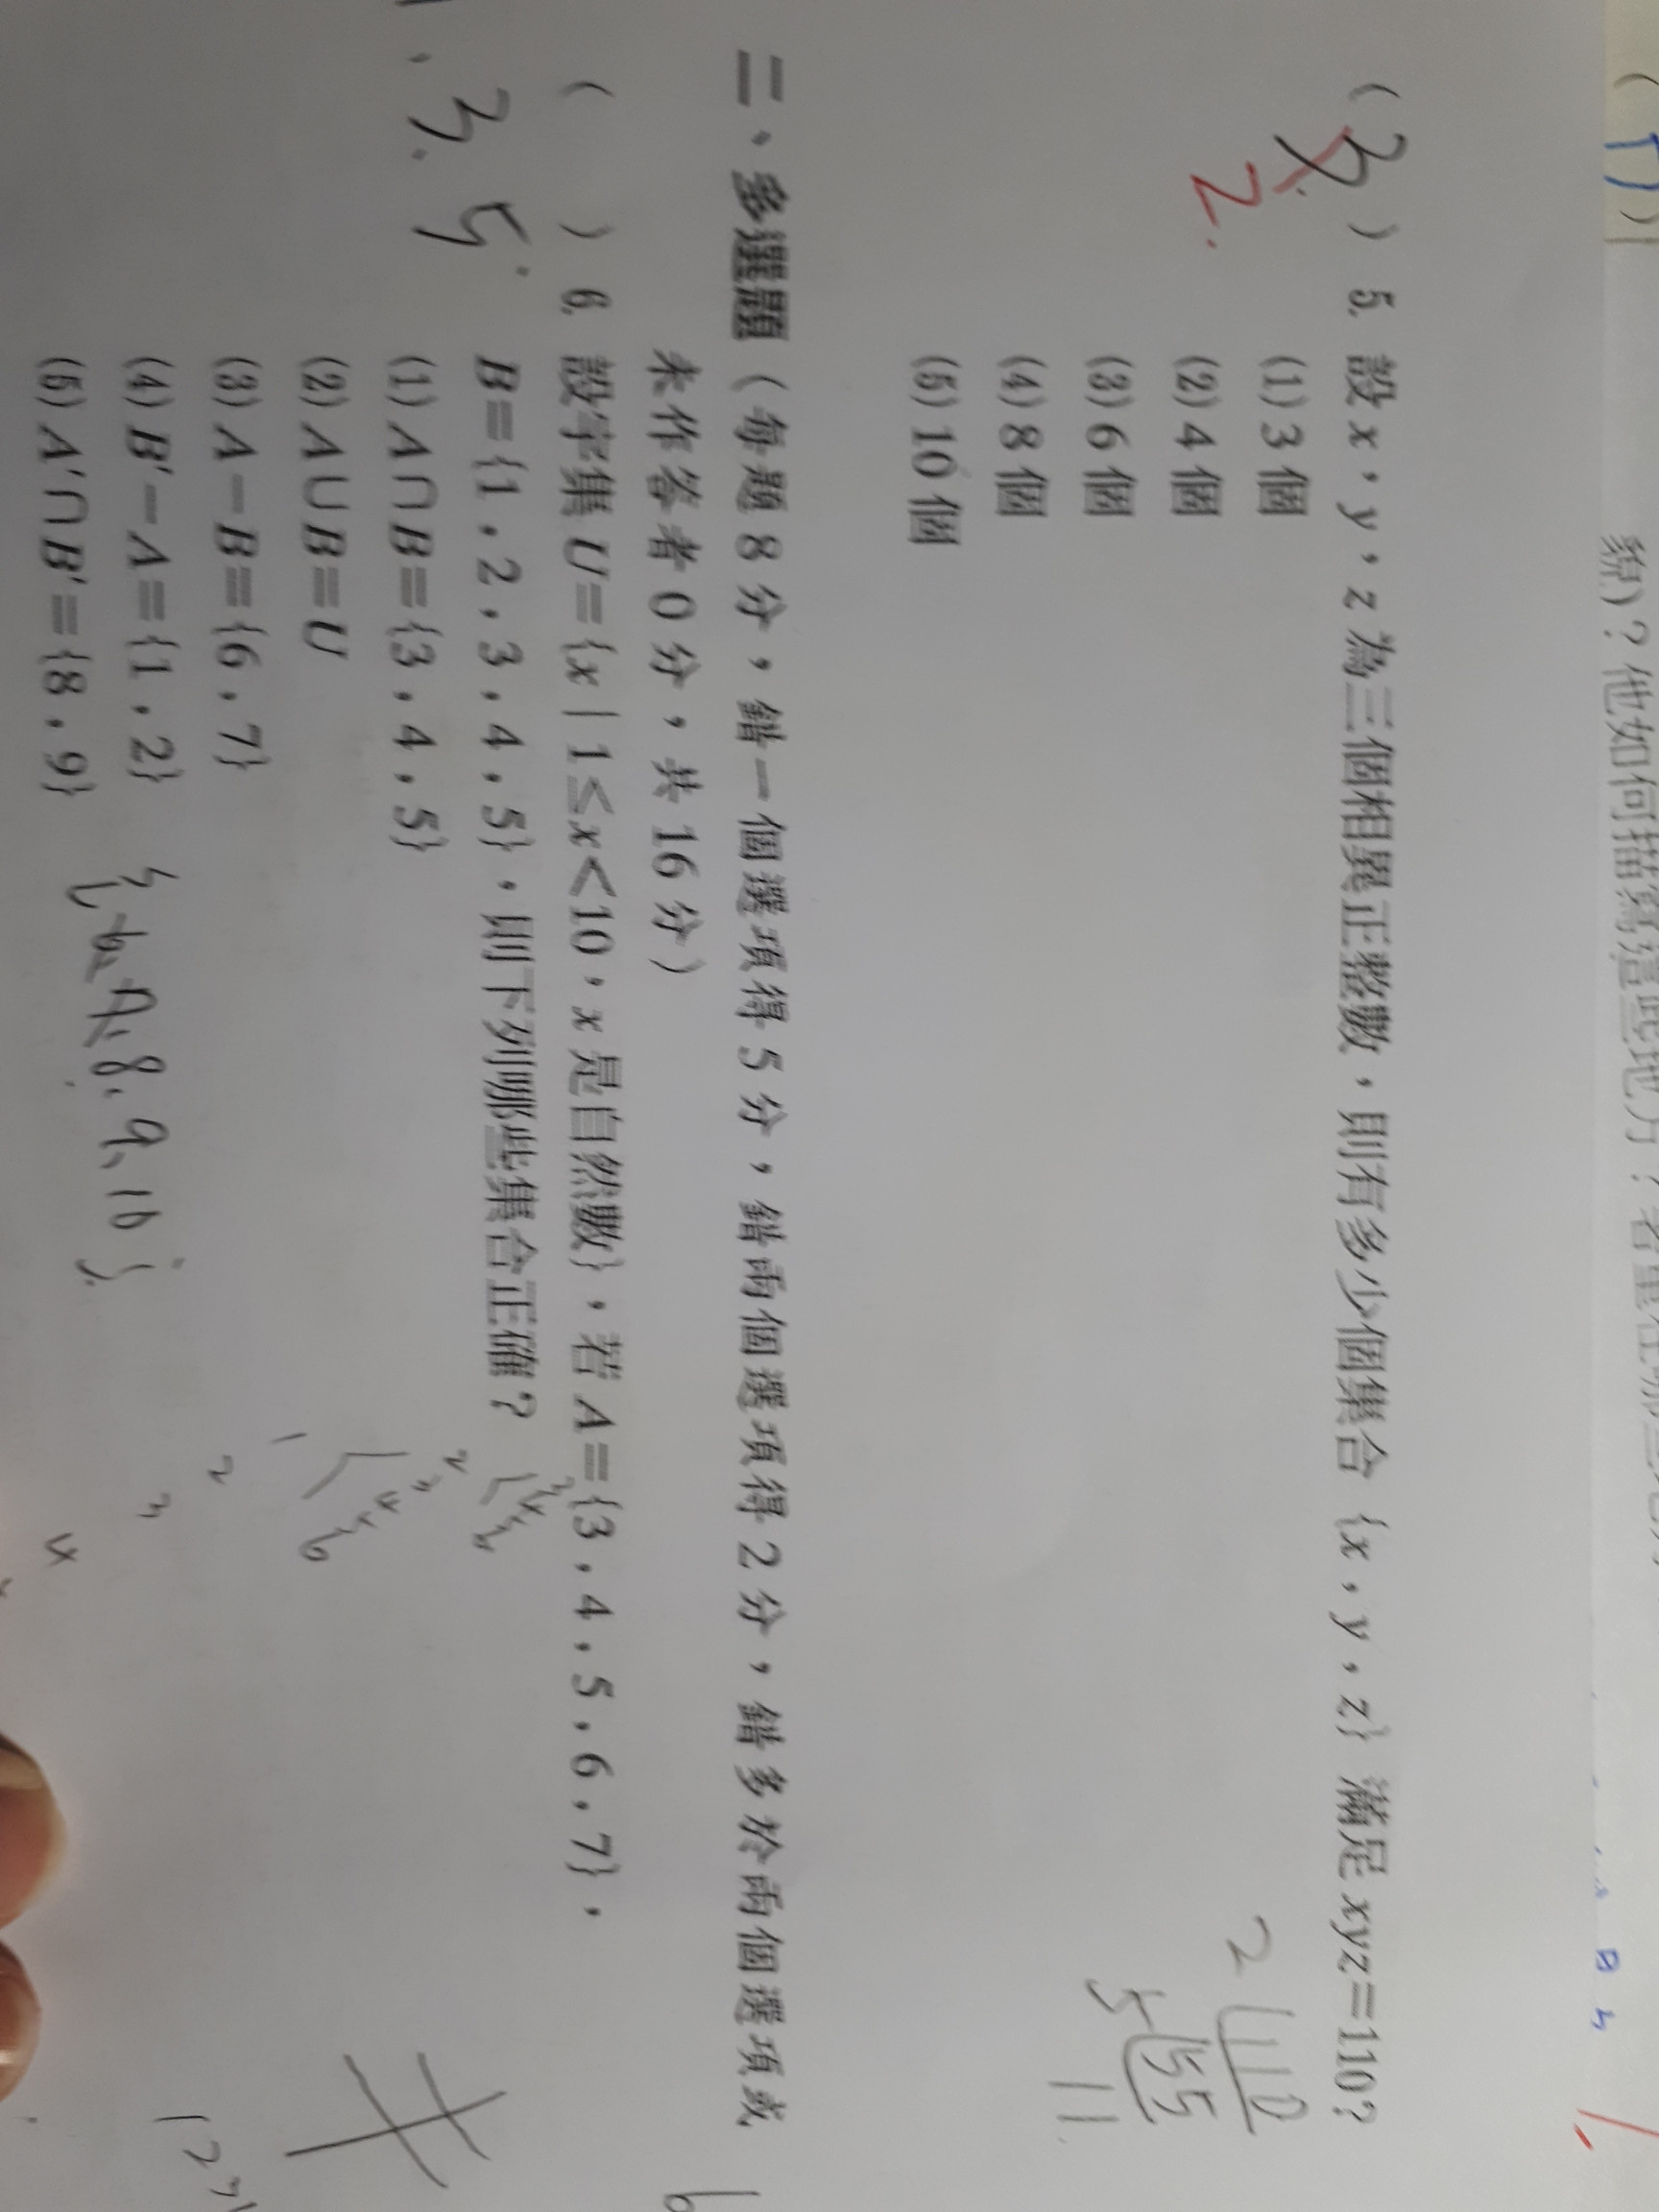 貌)？他如何描寫這些地方？
( 3 ) 5. 設 x，y，z 為三個相異正整數，則有多少個集合 {x，y，z} 滿足 xyz＝110？
2.
(1) 3 個
(2) 4 個
(3) 6 個
(4) 8 個
(5) 10 個
2 110
5 55
11
二、多選題（每題 8 分，錯一個選項得 5 分，錯兩個選項得 2 分，錯多於兩個選項或
未作答者 0 分，共 16 分）
( ) 6. 設宇集 U＝{x｜1≤x<10，x 是自然數}，若 A＝{3，4，5，6，7}，
1. 3. 5.
B＝{1，2，3，4，5}，則下列哪些集合正確？
(1) A∩B＝{3，4，5}
(2) A∪B＝U
(3) A－B＝{6，7}
(4) B'－A＝{1，2}
(5) A'∩B'＝{8，9}
{6, 7, 8, 9, 10}